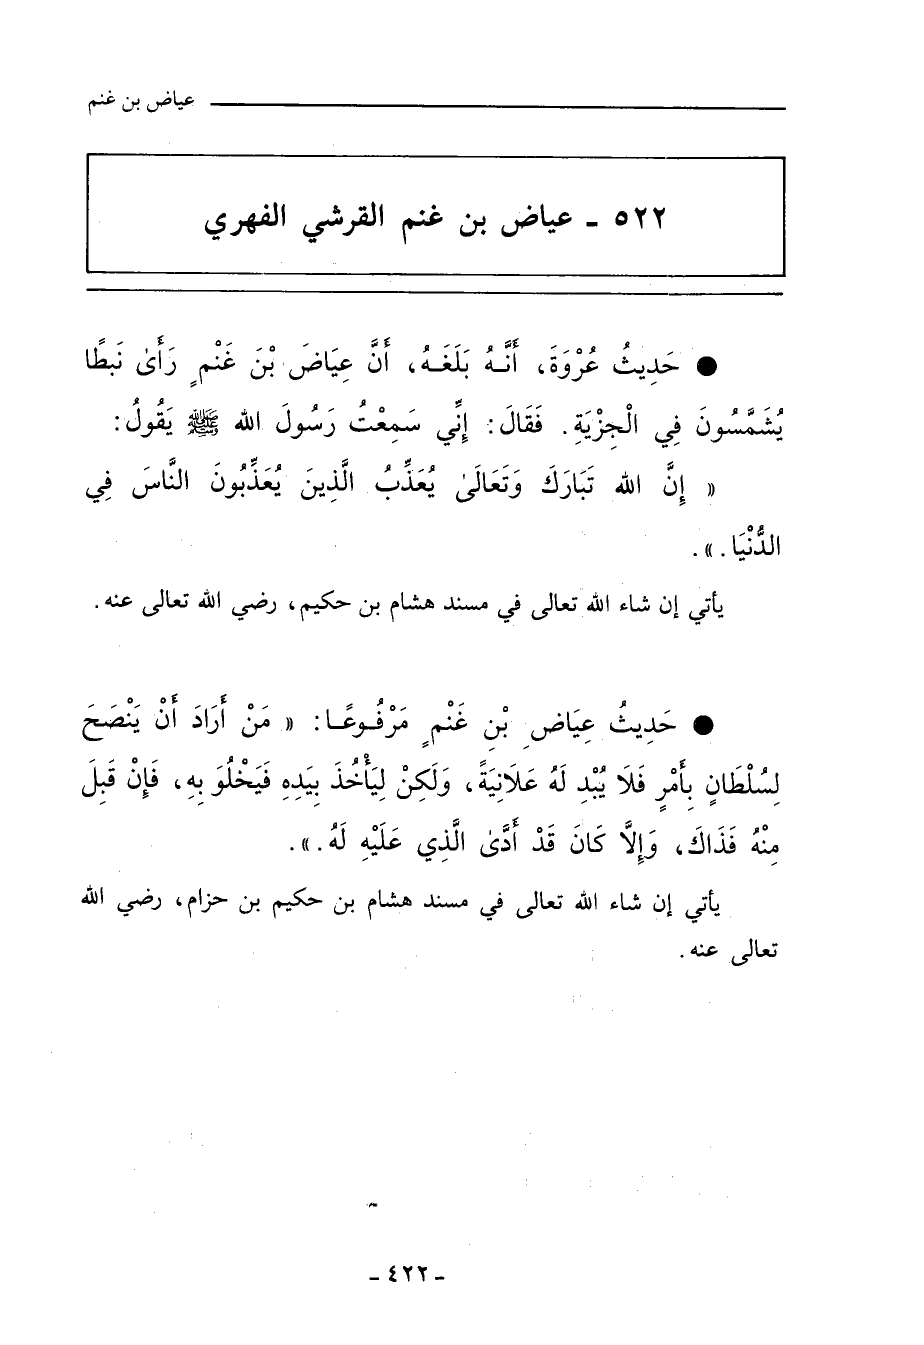 عياض بن غنم
٥٢٢ - عياض بن غنم القرشي الفهري
● حَدِيثُ عُرْوَةَ، أَنَّـهُ بَلَغَـهُ، أَنَّ عِيَاضَ بْنَ غَنْمٍ رَأَىٰ نَبَطًا
يُشَمَّسُونَ فِي الْجِزْيَةِ. فَقَالَ: إِنِّي سَمِعْتُ رَسُولَ الله ﷺ يَقُولُ:
« إِنَّ الله تَبَارَكَ وَتَعَالَىٰ يُعَذِّبُ الَّذِينَ يُعَذِّبُونَ النَّاسَ فِي
الدُّنْيَا.».
يأتي إن شاء الله تعالى في مسند هشام بن حكيم، رضي الله تعالى عنه.
● حَدِيثُ عِيَاضِ بْنِ غَنْمٍ مَرْفُـوعًـا: « مَنْ أَرَادَ أَنْ يَنْصَحَ
لِسُلْطَانٍ بِأَمْرٍ فَلَا يُبْدِ لَهُ عَلَانِيَةً، وَلَكِنْ لِيَأْخُذَ بِيَدِهِ فَيَخْلُوَ بِهِ، فَإِنْ قَبِلَ
مِنْهُ فَذَاكَ، وَإِلَّا كَانَ قَدْ أَدَّىٰ الَّذِي عَلَيْهِ لَهُ.».
يأتي إن شاء الله تعالى في مسند هشام بن حكيم بن حزام، رضي الله
تعالى عنه.
- ٤٢٢ -